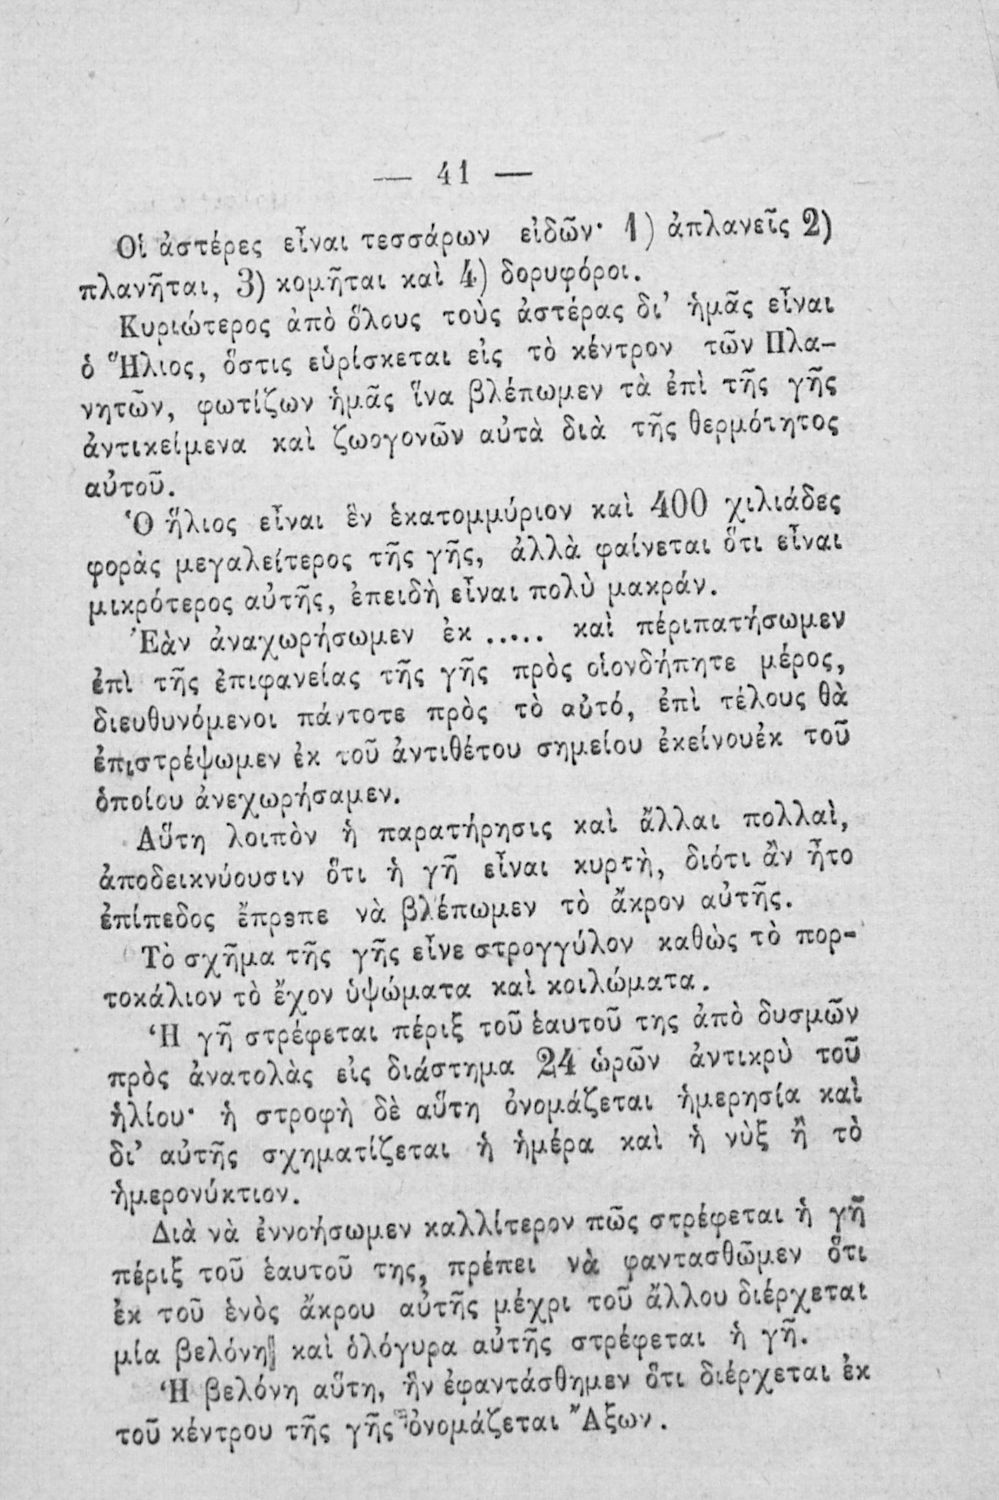 — 41 —
Οἱ ἀστέρες εἶναι τεσσάρων εἰδῶν· 1) ἀπλανεῖς 2)
πλανῆται, 3) κομῆται καὶ 4) δορυφόροι.
Κυριώτερος ἀπὸ ὅλους τοὺς ἀστέρας δι’ ἡμᾶς εἶναι
ὁ Ἥλιος, ὅστις εὑρίσκεται εἰς τὸ κέντρον τῶν Πλα-
νητῶν, φωτίζων ἡμᾶς ἵνα βλέπωμεν τὰ ἐπὶ τῆς γῆς
ἀντικείμενα καὶ ζωογονῶν αὐτὰ διὰ τῆς θερμότητος
αὐτοῦ.
Ὁ ἥλιος εἶναι ἓν ἑκατομμύριον καὶ 400 χιλιάδες
φορὰς μεγαλείτερος τῆς γῆς, ἀλλὰ φαίνεται ὅτι εἶναι
μικρότερος αὐτῆς, ἐπειδὴ εἶναι πολὺ μακράν.
Ἐὰν ἀναχωρήσωμεν ἐκ ..... καὶ πέριπατήσωμεν
ἐπὶ τῆς ἐπιφανείας τῆς γῆς πρὸς οἱονδήπητε μέρος,
διευθυνόμενοι πάντοτε πρὸς τὸ αὐτό, ἐπὶ τέλους θὰ
ἐπιστρέψωμεν ἐκ τοῦ ἀντιθέτου σημείου ἐκείνουἐκ τοῦ
ὁποίου ἀνεχωρήσαμεν.
Αὕτη λοιπὸν ἡ παρατήρησις καὶ ἄλλαι πολλαὶ,
ἀποδεικνύουσιν ὅτι ἡ γῆ εἶναι κυρτὴ, διότι ἂν ἦτο
ἐπίπεδος ἔπρεπε νὰ βλέπωμεν τὸ ἄκρον αὐτῆς.
Τὸ σχῆμα τῆς γῆς εἶνε στρογγύλον καθὼς τὸ πορ-
τοκάλιον τὸ ἔχον ὑψώματα καὶ κοιλώματα.
Ἡ γῆ στρέφεται πέριξ τοῦ ἑαυτοῦ της ἀπὸ δυσμῶν
πρὸς ἀνατολὰς εἰς διάστημα 24 ὡρῶν ἀντικρὺ τοῦ
ἡλίου· ἡ στροφὴ δὲ αὕτη ὀνομάζεται ἡμερησία καὶ
δι’ αὐτῆς σχηματίζεται ἡ ἡμέρα καὶ ἡ νὺξ ἢ τὸ
ἡμερονύκτιον.
Διὰ νὰ ἐννοήσωμεν καλλίτερον πῶς στρέφεται ἡ γῆ
πέριξ τοῦ ἑαυτοῦ της, πρέπει νὰ φαντασθῶμεν ὅτι
ἐκ τοῦ ἑνὸς ἄκρου αὐτῆς μέχρι τοῦ ἄλλου διέρχεται
μία βελόνη καὶ ὁλόγυρα αὐτῆς στρέφεται ἡ γῆ.
Ἡ βελόνη αὕτη, ἣν ἐφαντάσθημεν ὅτι διέρχεται ἐκ
τοῦ κέντρου τῆς γῆς ὀνομάζεται Ἄξων.